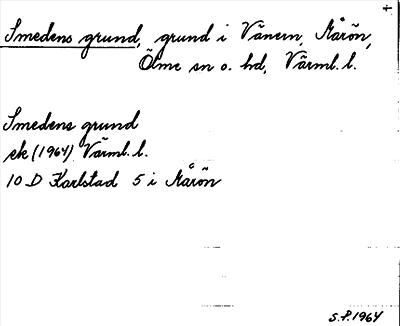 Smedens grund, grund i Vänern, Mårön,
Ölme sn o. hd, Värml. l.
Smedens grund
ek (1964) Värml. l.
10 D Karlstad 5 i Mårön
S.P. 1964